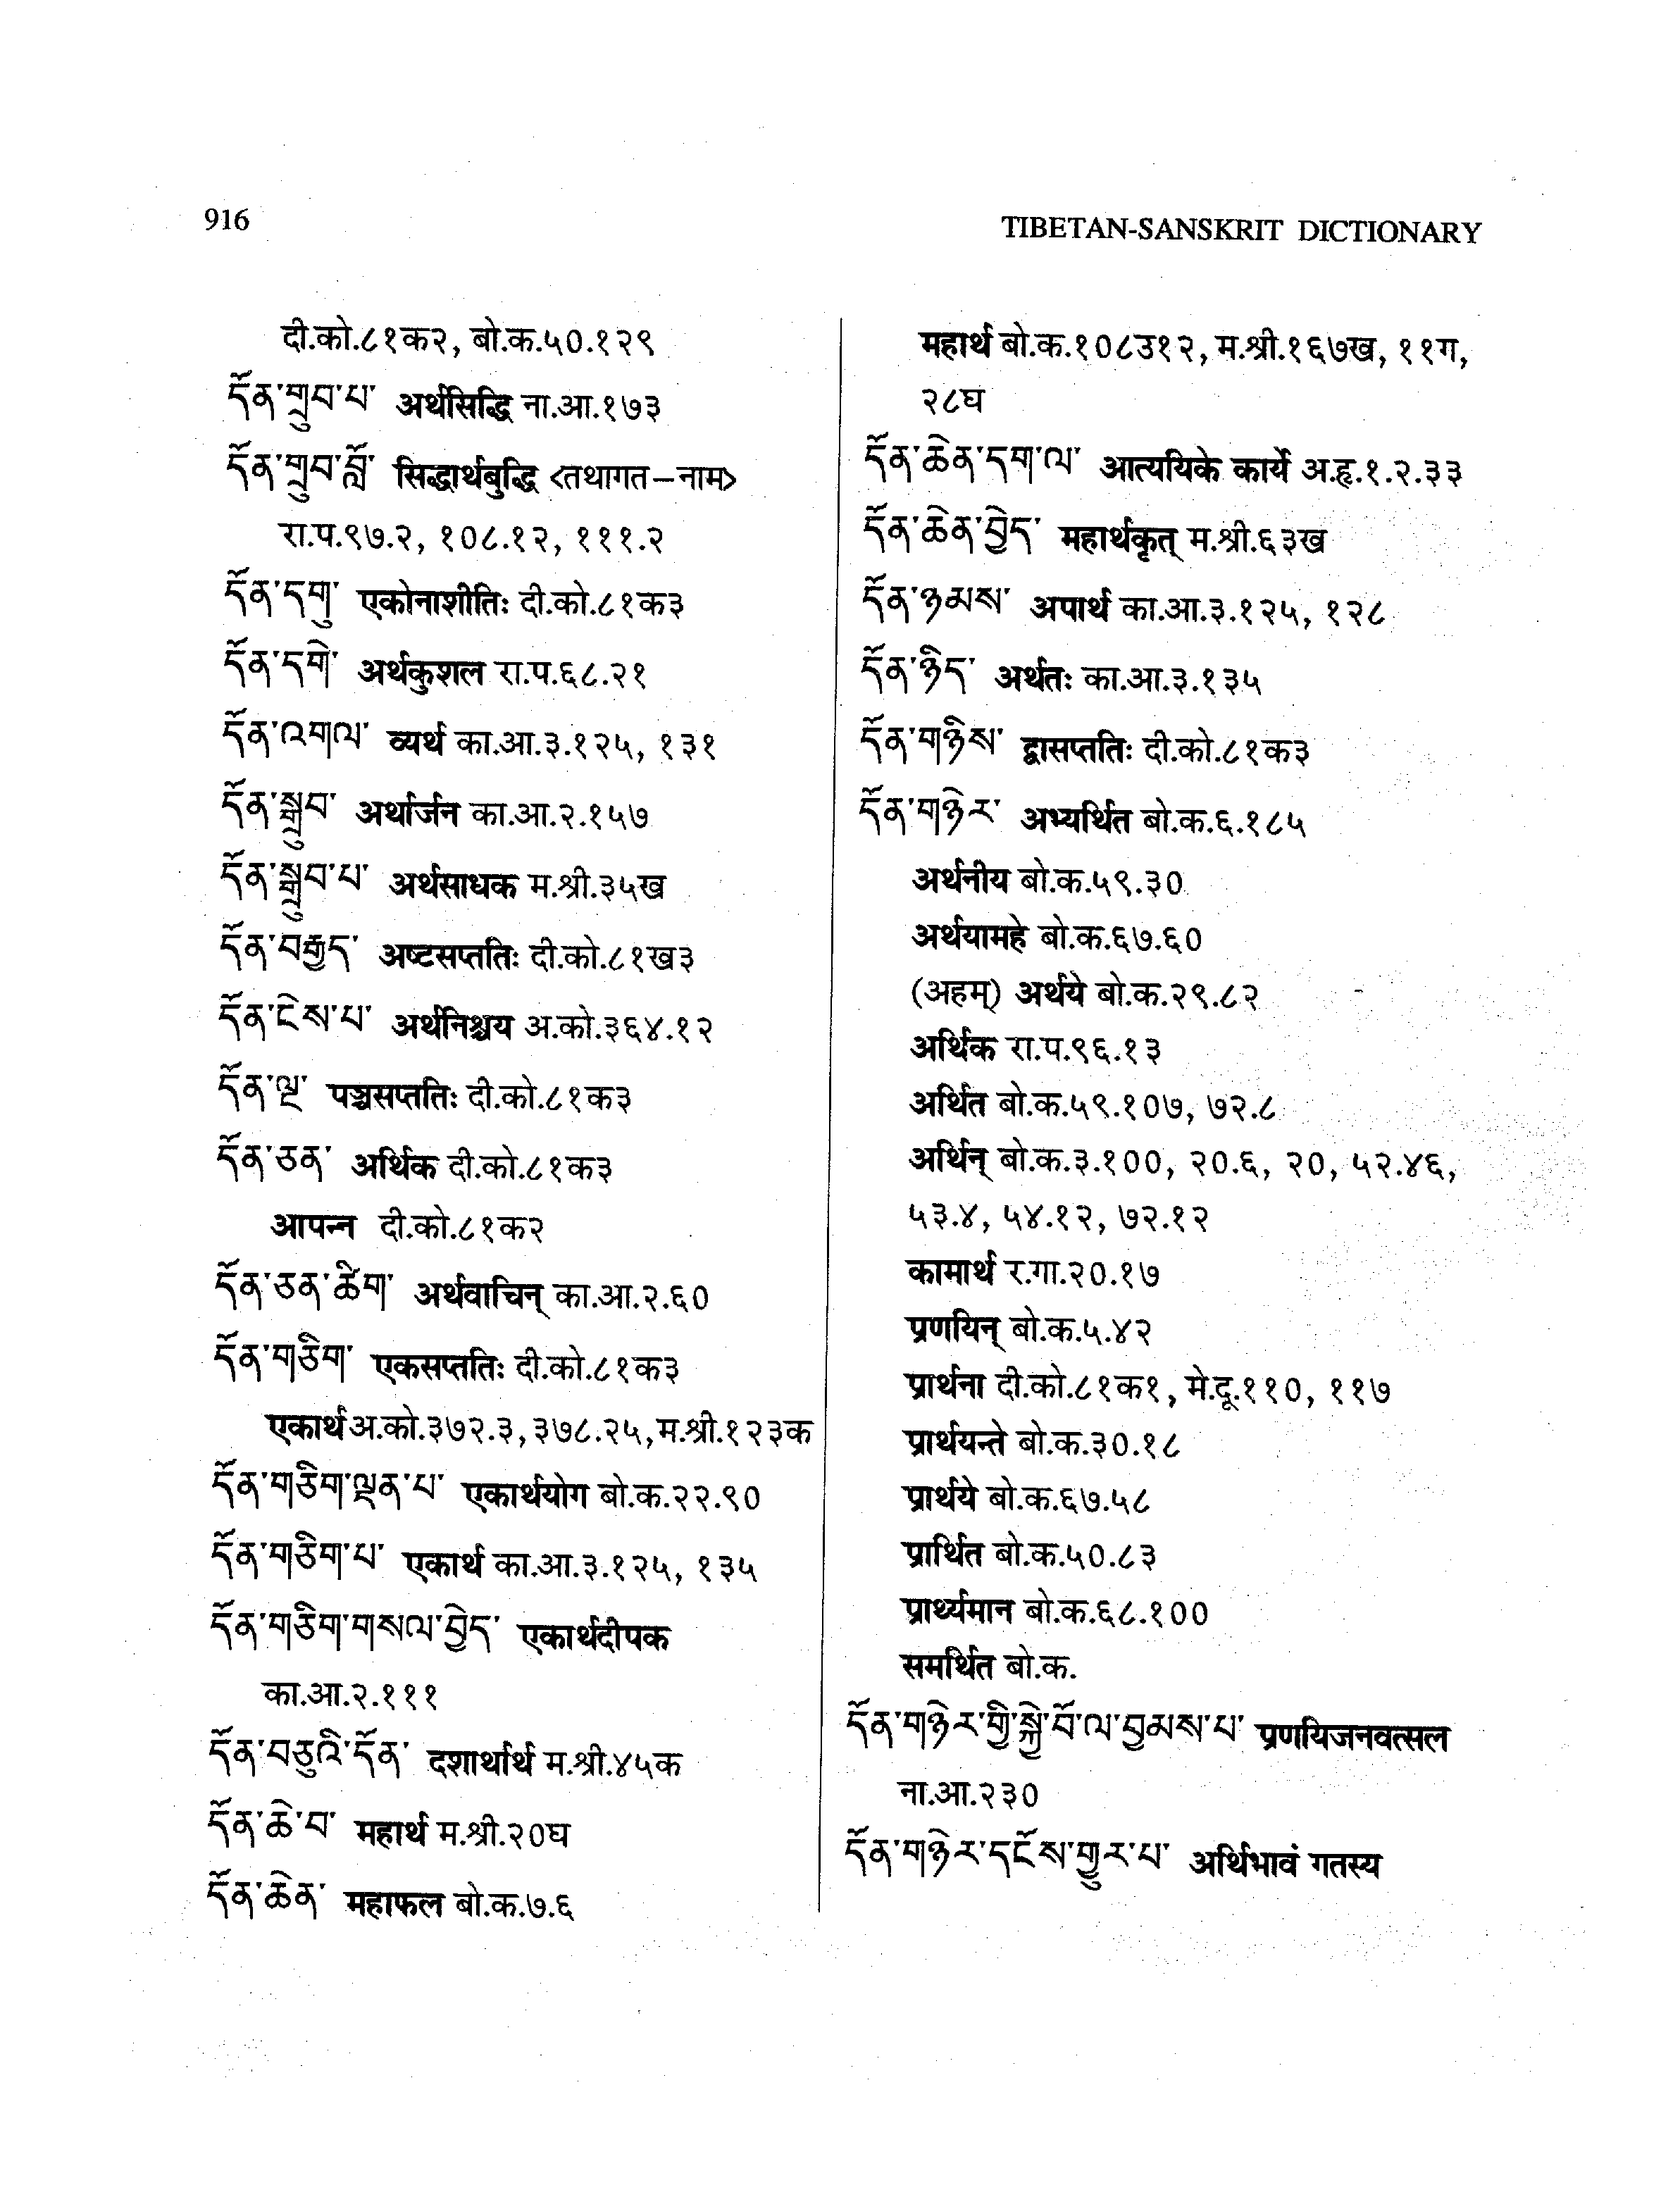 916
TIBETAN-SANSKRIT DICTIONARY
दी.को.८१क२, बो.क.५०.१२९
དོན་གྲུབ་པ་ अर्थसिद्धि ना.आ.१७३
དོན་གྲུབ་བློ་ सिद्धार्थबुद्धि <तथागत–नाम>
रा.प.९७.२, १०८.१२, १११.२
དོན་དགུ་ एकोनाशीतिः दी.को.८१क३
དོན་དགེ་ अर्थकुशल रा.प.६८.२१
དོན་འགལ་ व्यर्थ का.आ.३.१२५, १३१
དོན་སྒྲུབ་ अर्थार्जन का.आ.२.१५७
དོན་སྒྲུབ་པ་ अर्थसाधक म.श्री.३५ख
དོན་བརྒྱད་ अष्टसप्ततिः दी.को.८१ख३
དོན་ངེས་པ་ अर्थनिश्चय अ.को.३६४.१२
དོན་ལྔ་ पञ्चसप्ततिः दी.को.८१क३
དོན་ཅན་ अर्थिक दी.को.८१क३
आपन्न दी.को.८१क२
དོན་ཅན་ཚིག་ अर्थवाचिन् का.आ.२.६०
དོན་གཅིག་ एकसप्ततिः दी.को.८१क३
एकार्थ अ.को.३७२.३, ३७८.२५, म.श्री.१२३क
དོན་གཅིག་ལྡན་པ་ एकार्थयोग बो.क.२२.९०
དོན་གཅིག་པ་ एकार्थ का.आ.३.१२५, १३५
དོན་གཅིག་གསལ་བྱེད་ एकार्थदीपक
का.आ.२.१११
དོན་བཅུའི་དོན་ दशार्थार्थ म.श्री.४५क
དོན་ཆེ་བ་ महार्थ म.श्री.२०घ
དོན་ཆེན་ महाफल बो.क.७.६
महार्थ बो.क.१०८उ१२, म.श्री.१६७ख, ११ग,
२८घ
དོན་ཆེན་དག་ལ་ आत्ययिके कार्ये अ.हृ.१.२.३३
དོན་ཆེན་བྱེད་ महार्थकृत् म.श्री.६३ख
དོན་ཉམས་ अपार्थ का.आ.३.१२५, १२८
དོན་ཉིད་ अर्थतः का.आ.३.१३५
དོན་གཉིས་ द्वासप्ततिः दी.को.८१क३
དོན་གཉེར་ अभ्यर्थित बो.क.६.१८५
अर्थनीय बो.क.५९.३०
अर्थयामहे बो.क.६७.६०
(अहम्) अर्थये बो.क.२९.८२
अर्थिक रा.प.९६.१३
अर्थित बो.क.५९.१०७, ७२.८
अर्थिन् बो.क.३.१००, २०.६, २०, ५२.४६,
५३.४, ५४.१२, ७२.१२
कामार्थ र.गा.२०.१७
प्रणयिन् बो.क.५.४२
प्रार्थना दी.को.८१क१, मे.दू.११०, ११७
प्रार्थयन्ते बो.क.३०.१८
प्रार्थये बो.क.६७.५८
प्रार्थित बो.क.५०.८३
प्रार्थ्यमान बो.क.६८.१००
समर्थित बो.क.
དོན་གཉེར་གྱི་སྐྱེ་བོ་ལ་བྱམས་པ་ प्रणयिजनवत्सल
ना.आ.२३०
དོན་གཉེར་དངོས་གྱུར་པ་ अर्थिभावं गतस्य